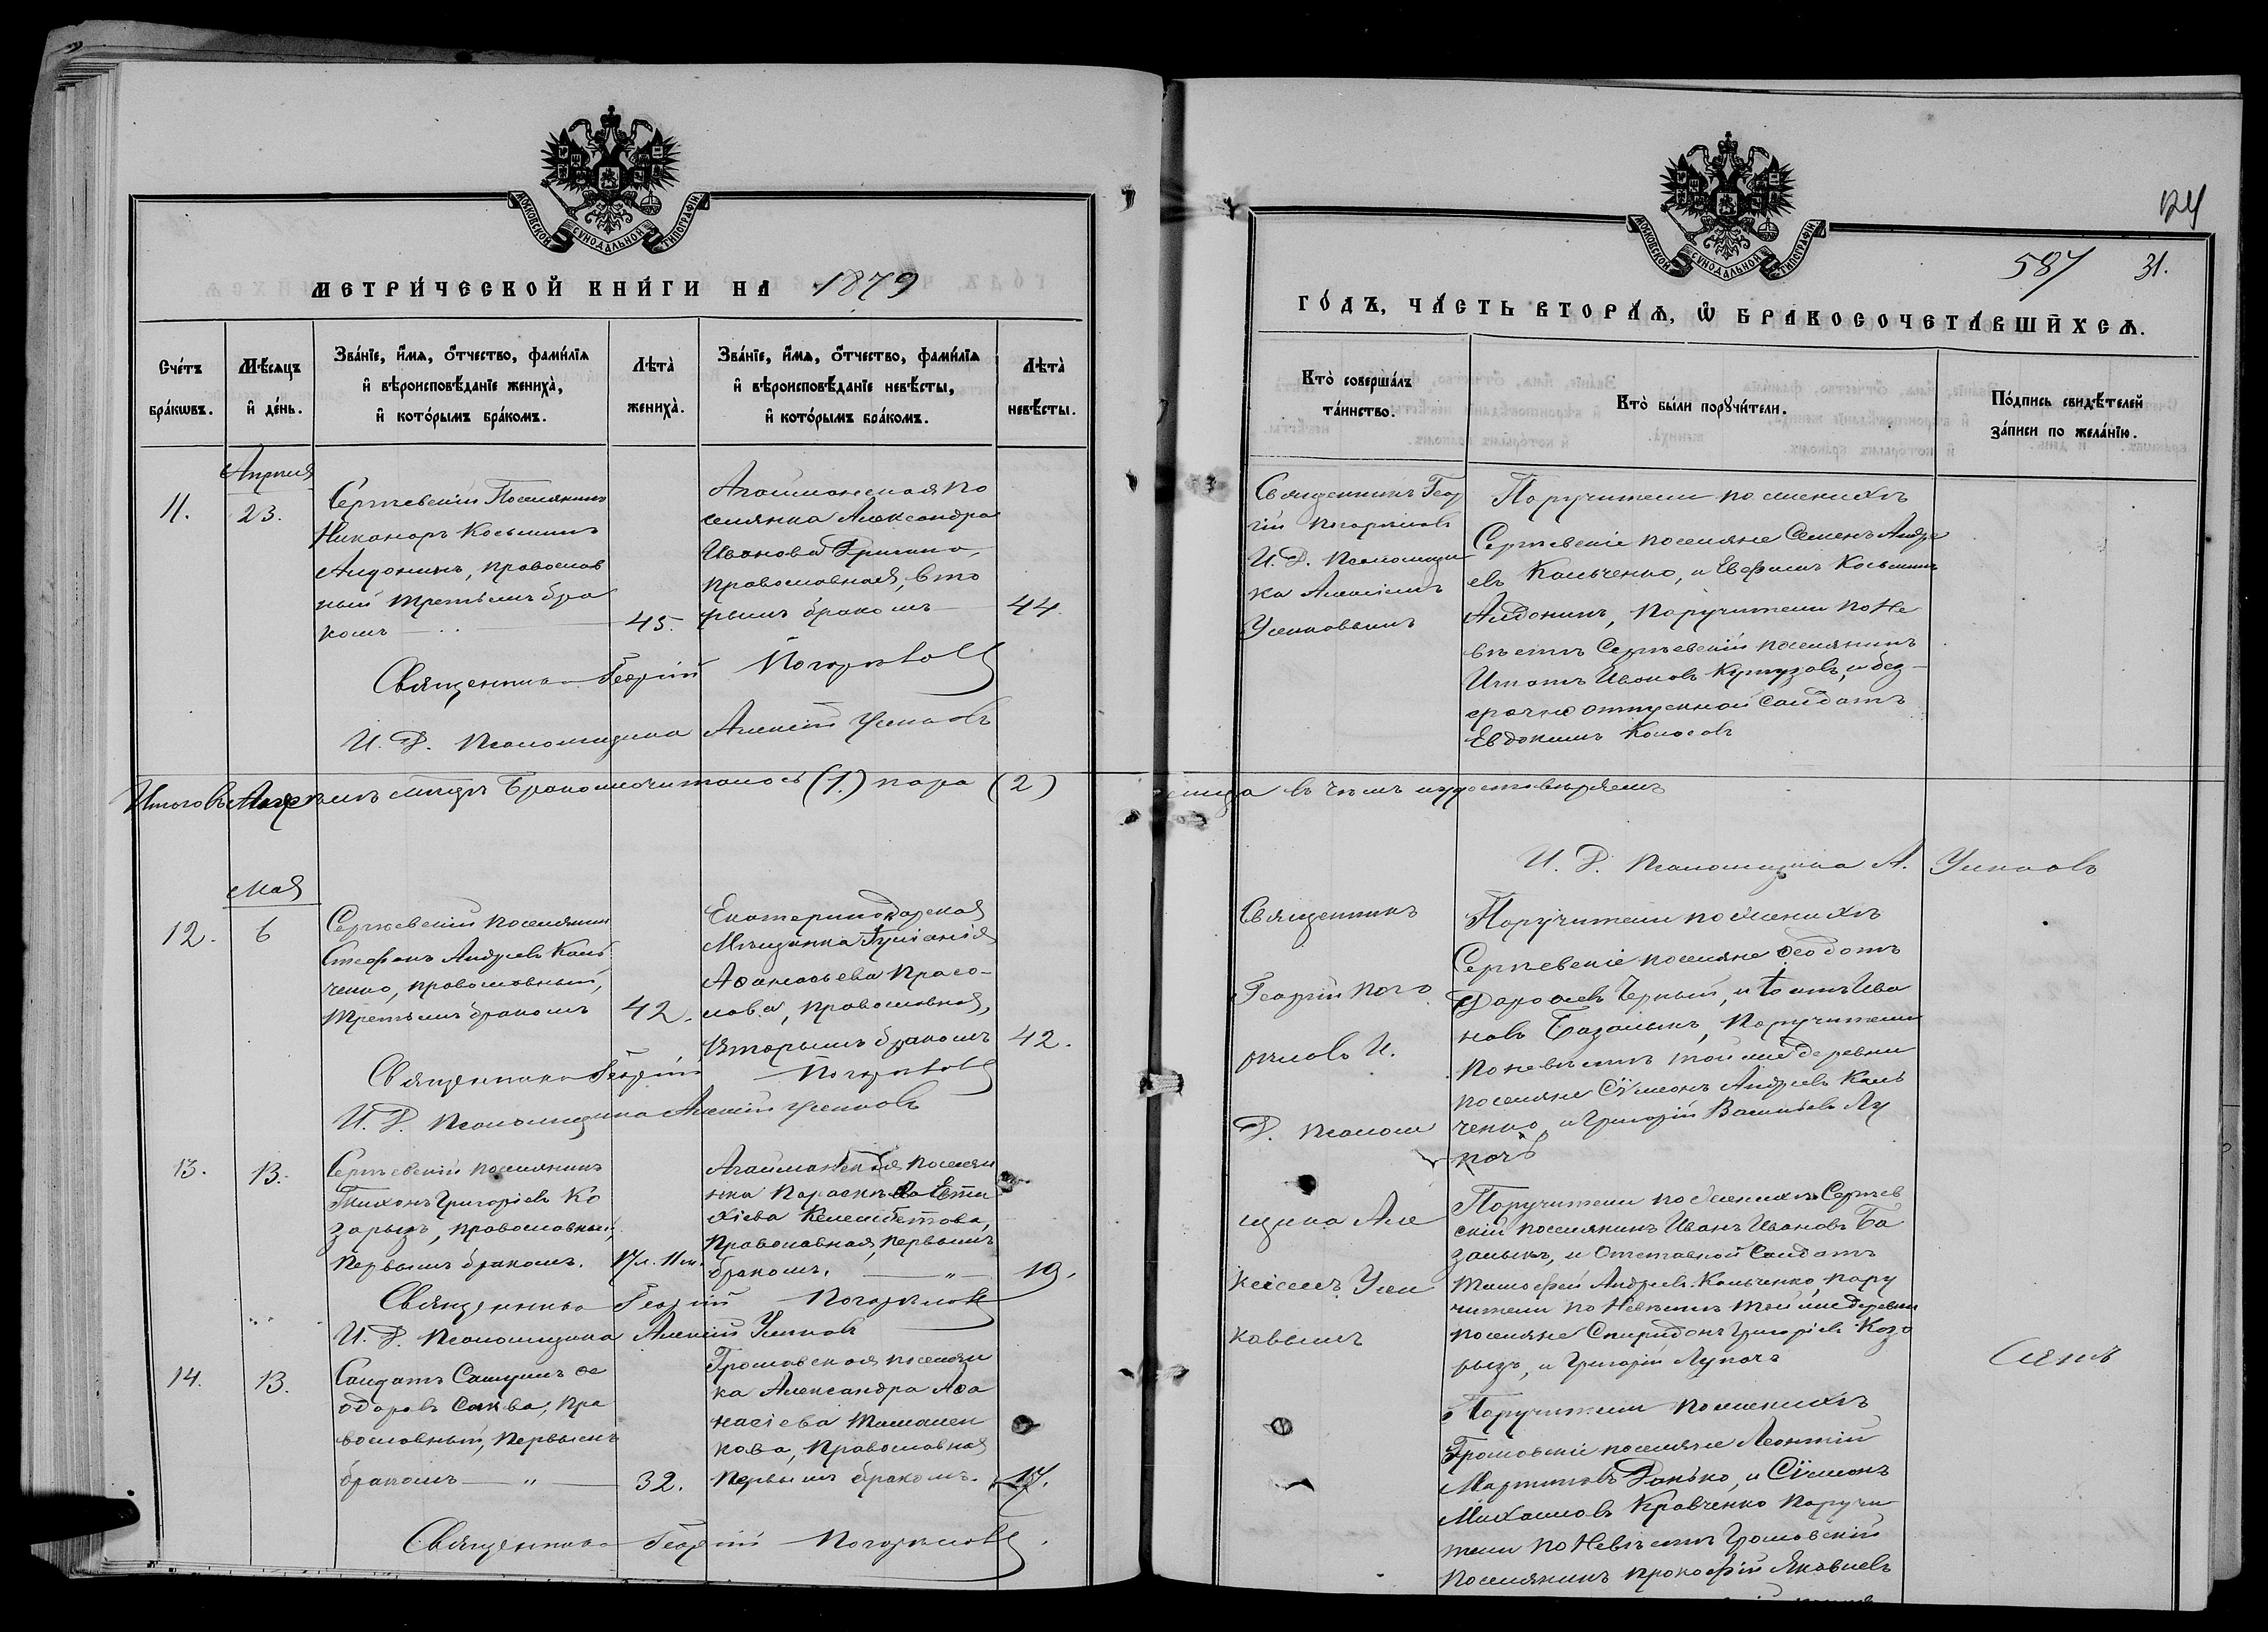 МОСКОВСКОЙ СѴНОДАЛЬНОЙ ТИПОГРАФІИ
МЕТРИЧЕСКОЙ КНИГИ НА 1879
Счетъ браковъ.
Мѣсяцъ и день.
Званіе, имя, отчество, фамилія
и вѣроисповѣданіе жениха,
и которымъ бракомъ.
Лѣта
жениха.
Званіе, имя, отчество, фамилія
и вѣроисповѣданіе невѣсты,
и которымъ бракомъ.
Лѣта
невѣсты.
Апрѣля
11.
23.
Сергѣевскій Поселянинъ
Никаноръ Косьминъ
Алдонинъ, православ
ный третьимъ бра
комъ
45.
Агайманская по
селянка Александра
Иванова
православная, вто
рымъ бракомъ
44.
Священникъ Георгій Погорѣловъ
И. Д. Псаломщика Алексій Усиковъ
Итого въ Апрѣлѣ мѣсяцѣ (1) пара (2)
Мая
12.
6
Сергѣевскій поселянинъ
Стефанъ Андреевъ Каль
ченко, православный,
третьимъ бракомъ
42.
Екатеринодарская
Мѣщанка Іуліанія
Афанасьева Прасо-
лова, православная,
вторымъ бракомъ
42.
Священникъ Георгій Погорѣловъ
И. Д. Псаломщика Алексій Усиковъ
13.
13.
Сергѣевскій поселянинъ
Тихонъ Григоріевъ Ко
зарызъ, православный,
первымъ бракомъ.
17 л. 11 м.
Агайманская поселян
ка Параскева
Келембетова,
Православная, первымъ
бракомъ.
19.
Священникъ Георгій Погорѣловъ
И. Д. Псаломщика Алексій Усиковъ
14.
13.
Солдатъ Самуилъ Ѳе
одоровъ Саква, пра
вославный, первымъ
бракомъ
32.
Громовская поселян
ка Александра Аѳа
насіева Томашен
кова, православная
первымъ бракомъ.
17.
Священникъ Георгій Погорѣловъ
МОСКОВСКОЙ СѴНОДАЛЬНОЙ ТИПОГРАФІИ
587
31.
ГОДЪ, ЧАСТЬ ВТОРАЯ, Ѡ БРАКОСОЧЕТАВШИХСЯ.
Кто совершалъ
таинство.
Кто были поручители.
Подпись свидѣтелей
записи по желанію.
Священникъ Геор
гій Погорѣловъ
И. Д. Псаломщи
ка Алексіемъ
Усиковымъ
Поручители по женихѣ
Сергѣевскіе поселяне Семенъ Андре
евъ Кальченко, и Евфимъ Косьминъ
Алдонинъ, поручители по не
вѣстѣ Сергѣевскій поселянинъ
Игнатъ Ивановъ Кутузовъ, и без-
срочно отпускной солдатъ
Евдокимъ Колосовъ
въ чемъ и удостовѣряемъ
И. Д. Псаломщика А. Усиковъ
Священникъ
Георгій Пого
рѣловъ И.
Д. Псалом
щика Але
ксіемъ Уси
ковымъ
Поручители по женихѣ
Сергѣевскіе поселяне Ѳеодотъ
Черный, и Іоаннъ Ива
новъ Базалыкъ, поручители
по невѣстѣ той же деревни
поселяне Сѵмеонъ Андреевъ Каль
ченко, и Григорій Васильевъ Лу
качъ
Поручители по женихѣ Сергѣев
скій поселянинъ Иванъ Ивановъ Ба
залыкъ, и Отставной Солдатъ
Тимофей Андреевъ Кальченко, пору
чители по Невѣстѣ той же деревни
поселяне Спиридонъ Григоріевъ Коза
рызъ, и Григорій Лукачъ
Поручители по женихѣ
Громовскіе поселяне Леонтій
Мартиновъ Данько, и Сѵмеонъ
Михаиловъ Кравченко поручи
тели по Невѣстѣ Громовскій
поселянинъ Прокофій Яковлевъ